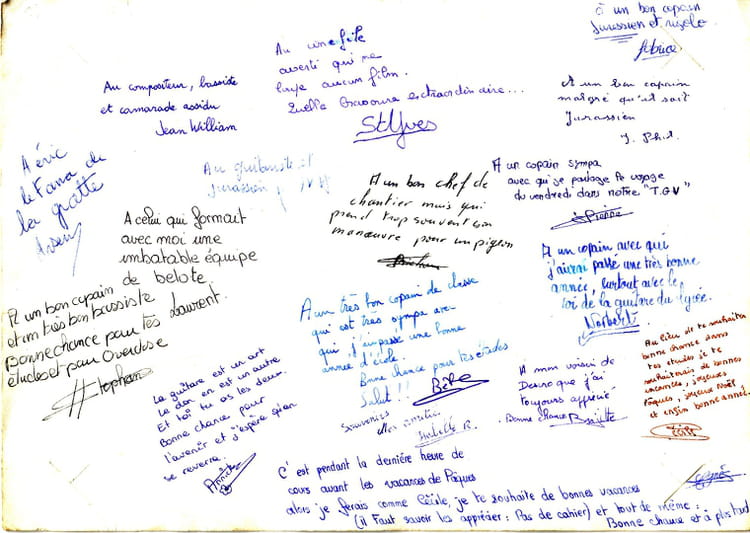 Au compositeur, bassiste
et camarade assidu
Jean William
Au cinéfile
averti qui ne
loupe aucun film.
Quelle bravoure extraordinaire...
St Yves
à un bon copain
Jurassien et rigolo
fabrice
A un bon copain
malgré qu'il soit
Jurassien
J. Phil.
A éric
le Fana de
la gratte
Au guitariste et
Jurassien
A un bon chef de
chantier mais qui
prend trop souvent son
manœuvre pour un pigeon
A un copain sympa
avec qui je partage le voyage
du vendredi dans notre "T.G.V"
Pierre
A celui qui formait
avec moi une
imbatable équipe
de belote.
Laurent.
A un copain avec qui
j'aurai passé une très bonne
année, surtout avec le
roi de la guitare du lycée.
Norbert
A un bon copain
et un très bon bassiste
Bonne chance pour tes
études et pour Overdose
Stephane
A un très bon copain de classe
qui est très sympa avec
qui j'ai passé une bonne
année d'école.
Bonne chance pour tes études
Salut!!
Au lieu de te souhaiter
bonne chance dans
tes études je te
souhaiterais de bonnes
vacances, joyeuses
Pâques, joyeux Noël
et enfin bonne année.
La guitare est un art
Le don en est un autre
Et toi tu as les deux.
Bonne chance pour
l'avenir et j'espère qu'on
se reverra.
Souvenirs
Mon amitié
Isabelle R.
A mon voisin de
Dessine que j'ai
toujours apprécié
Bonne chance
C'est pendant la dernière heure de
cours avant les vacances de Pâques
alors je ferais comme Cécile, je te souhaite de bonnes vacances
(il faut savoir les apprécier : Pas de cahier) et tout de même :
Bonne chance et à plus tard